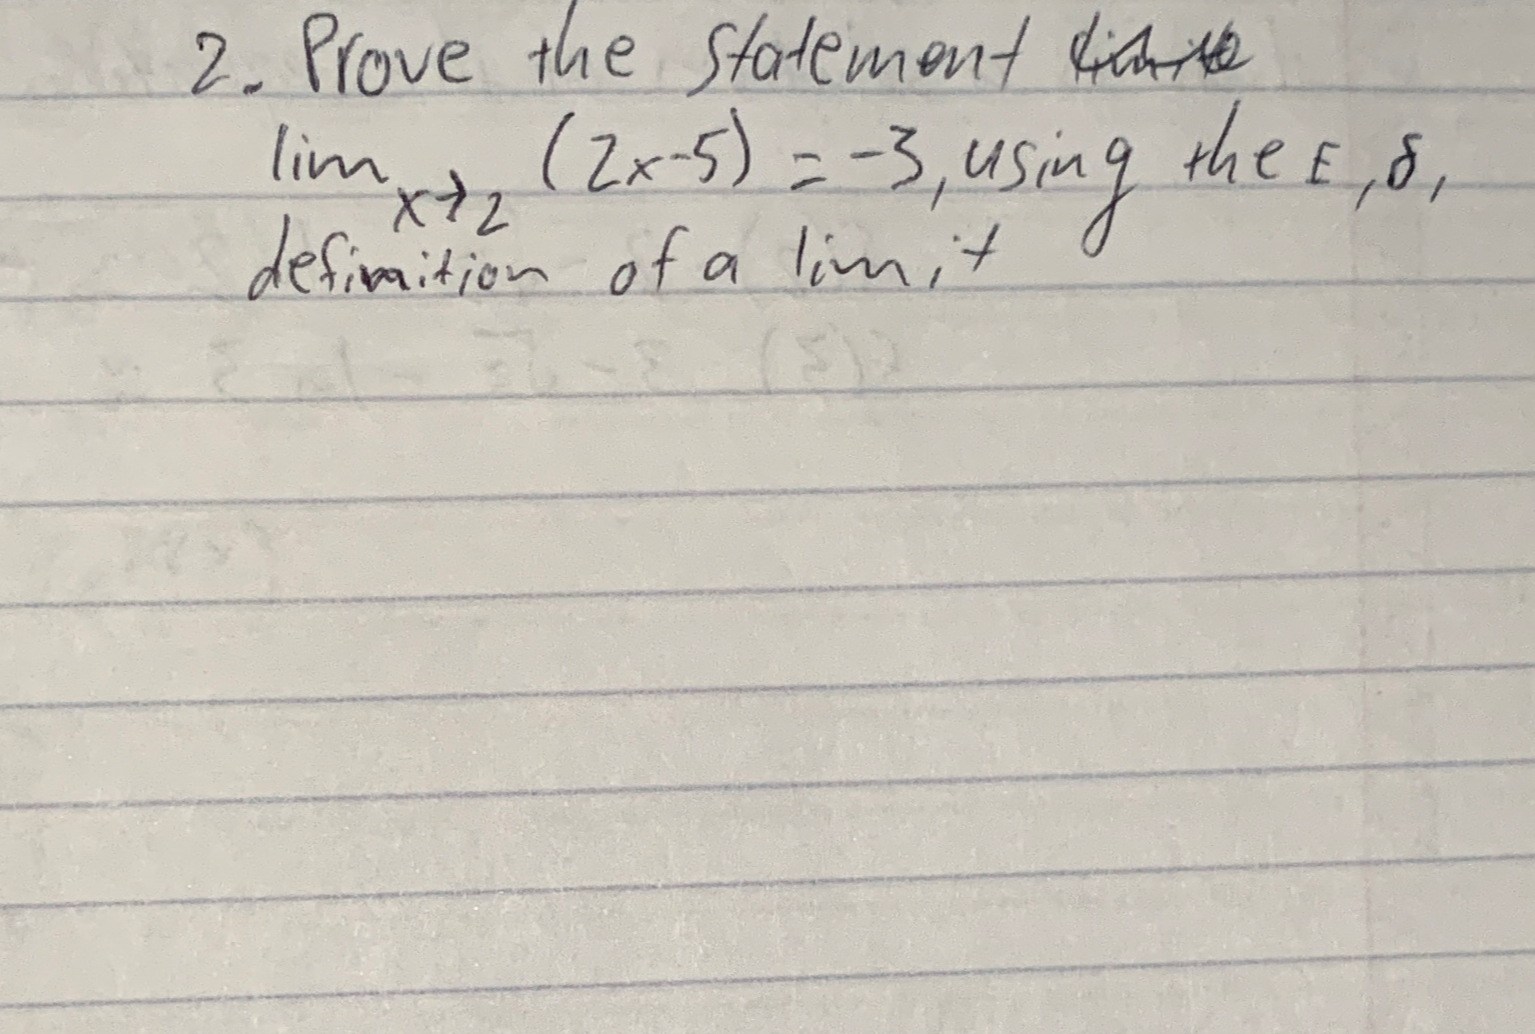 2. Prove the statement
lim x→2 (2x-5) = -3, using the ε, δ,
definition of a limit